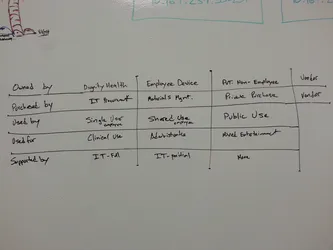 Owned by Dignity Health Employee Device Pvt. Non-Employee Vendor
Purchased by IT Procurement Materials Mgmt. Private Purchase Vendor
Used by Single User Shared Use Public Use
employee employee
Used for Clinical Use Administrative Mixed Entertainment
Supported by IT-Full IT-partial None